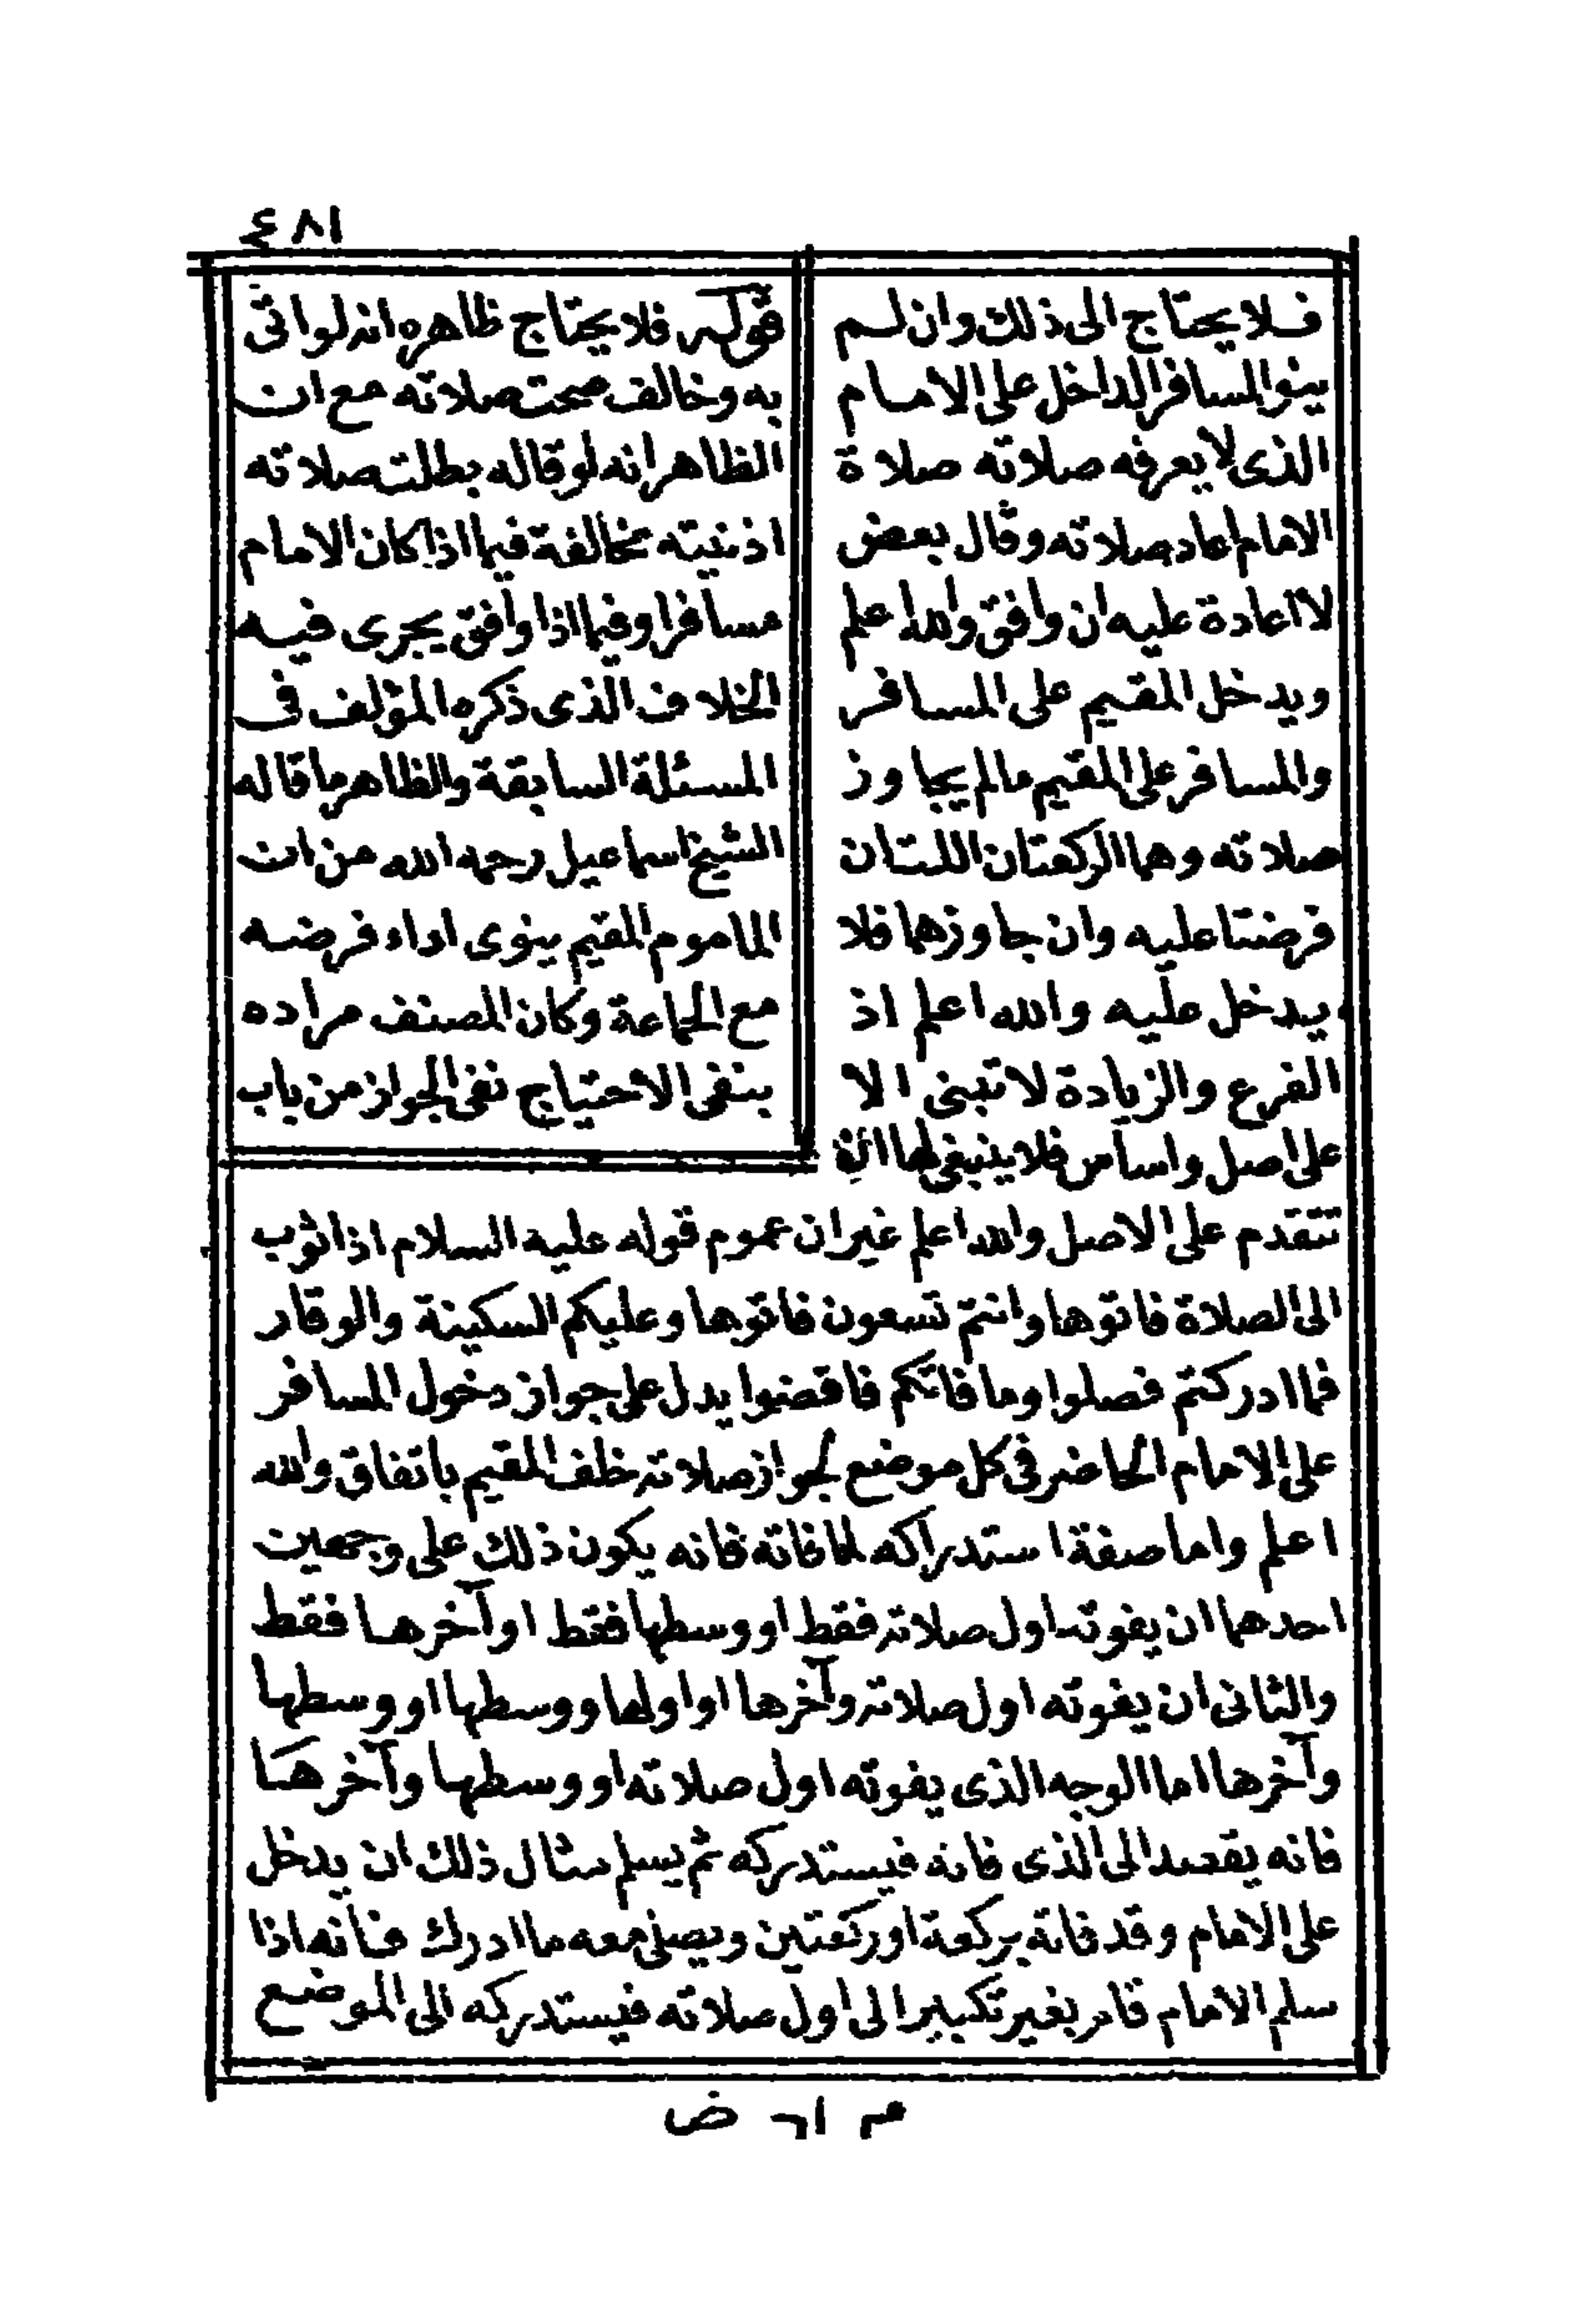 ٤٨١
فلا يحتاج الى ذلك وان لم
ينو المسافر الداخل على الامام
الذى لا يعرفه صلاته صلاة
الامام اعاد صلاته وقال بعض
لا اعادة عليه ان وافق والله اعلم
ويدخل المقيم على المسافر
والمسافر على المقيم مالم يجاوز
صلاته وهما الركعتان اللتان
فرضتا عليه وان جاوزهما فلا
يدخل عليه والله اعلم اذ
الفرع والزيادة لا تبنى الا
على اصل واساس فلا ينبغى لها ان
تتقدم على الاصل والله اعلم غير ان عموم قوله عليه السلام اذا ثوب
الى الصلاة فاتوها وانتم تسعون فاتوها وعليكم السكينة والوقار
فما ادركتم فصلوا وما فاتكم فاقضوا يدل على جواز دخول المسافر
على الامام الحاضر فى كل موضع لجواز صلاته خلف المقيم باتفاق والله
اعلم واما صفة استدراكه لما فاته فانه يكون ذلك على وجهين
احدهما ان يفوته اول صلاته فقط او وسطها فقط او آخرها فقط
والثانى ان يفوته اول صلاته وآخرها او اولها ووسطها او وسطها
وآخرها اما الوجه الذى يفوته اول صلاته او وسطها وآخرها
فانه يقصد الى الذى فاته فيستدركه ثم يسلم مثال ذلك ان يدخل
على الامام وقد فاته بركعة او ركعتين ويصلى معه ما ادرك فانه اذا
سلم الامام قام بغير تكبير الى اول صلاته فيستدركه الى الموضع
قوله فلا يحتاج ظاهره انه لو اتى
به وخالف صحت صلاته مع ان
الظاهر انه لو قاله بطلت صلاته
اذ نيته مخالفة فيما اذا كان الامام
مسافرا وفيما اذا وافق يجرى فيه
الخلاف الذى ذكره المؤلف فى
المسئلة السابقة والظاهر ما قاله
الشيخ اسماعيل رحمه الله من ان
الماموم المقيم ينوى اداء فرضه
مع الجماعة وكان المصنف مراده
بنفى الاحتياج نفى الجواز من باب
م ٦١ ض